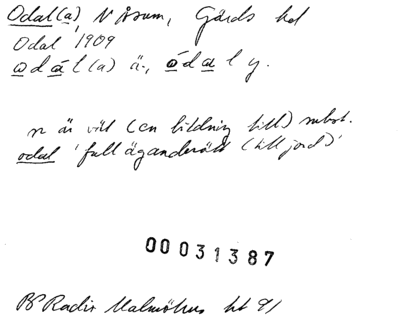 Odal(a), N Åsum, Gärds hd
Odal 1909
odál(a) ä., ódal y.
n är väl (en bildning till) subst.
odal 'full äganderätt (till jord)'
00031387
Radio Malmöhus ht 81